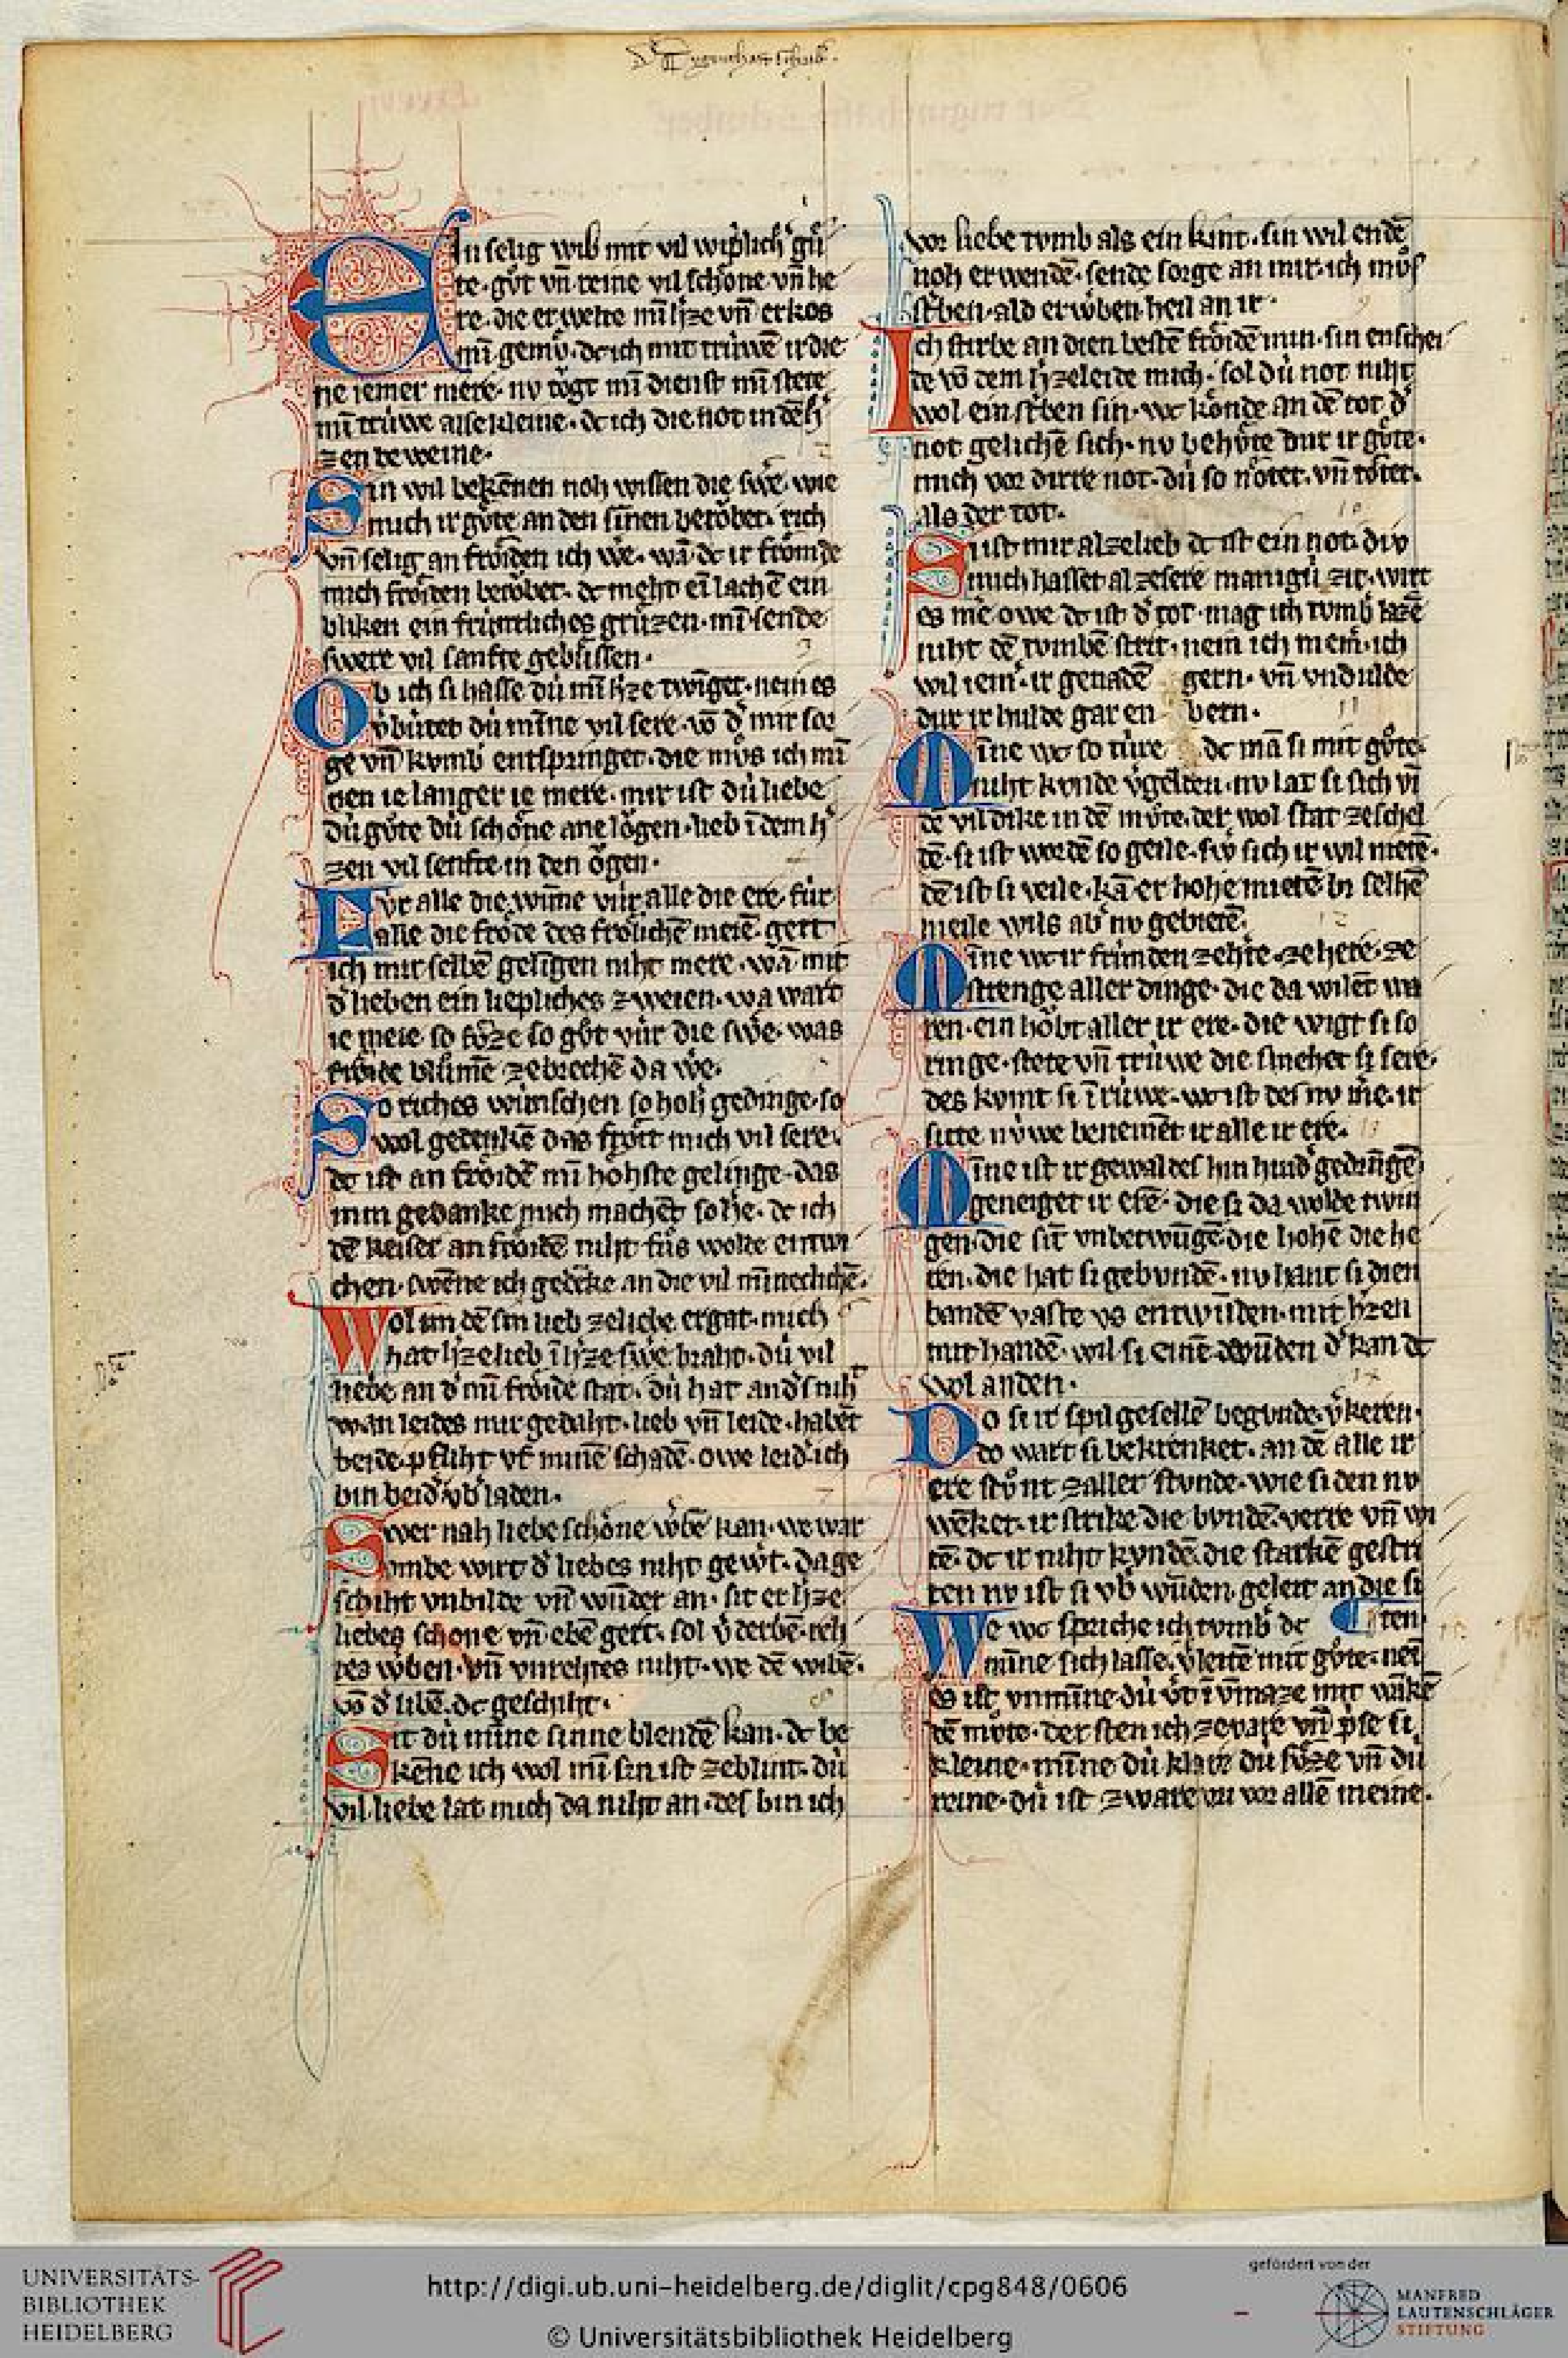 In selig wib mit vil wiplich' gu̍
te· gu̍t vn̄ reine vil schone· vn̄ he
re· die erwelte mī h'ze vn̄ erkos
dc ich mit trúwē ir die
ne iemer mere· nv mī dienst mī stete
mī trúwe alse kleine· dc ich die not in dē h'
zen beweine·
in wil bekēnen noh wissen die swe· wie
mich ir gu̍te an den sinen ich
vn̄ selig an frőiden ich we· wā dc ir frőmde
mich frőiden dc meht eī lachē ein
bliken ein frúntliches grűzen· mī sende
swere vil sanfte
Ob ich si hasse dú mī h'ze twīget· nein es
dú mīne vil sere· vō d' mir sor
ge vn̄ kvmb' entspringet· die mős ich mī
nen ie langer ie mere· mir ist dú liebe
dú gőte dú schőne ane lőgen· lieb ī dem h'
zen vil senfte in den őgen·
Fvr alle die wūne vúr alle die ere· fúr
alle die frőde des frőlichē meiē· gert
ich mir selbē geligen niht mere· wā mit
d' lieben ein liepliches zweien· wa wart
ie meie so sőze so gőt vúr die swe· was
frőide blűmē zebrechē da we·
So riches wúnschen so hoh gedinge· so
wol gedenkē das frőit mich vil sere·
dc ist an frőidē mī hőhste gelinge· das
min gedanke mich machet so he· dc ich
dē keiser an frőidē niht fús wolte entwi
chen· swēne ich gedēke an die vil mīnechlichē·
Wol im dē sin lieb zeliebe ergat· mich
hat h'zelieb ī h'ze swe braht· dú vil
liebe an d' mī frőide stat· dú hat anders niht
wan leides mir gedaht· lieb vn̄ leide· habēt
beide pfliht vf minē schadē· owe leid' ich
bin beid' vb'laden·
Swer nah liebe schőne w'bē kan· we war
vmbe wirt d' liebes niht gew't· da ge
schiht vnbilde vn̄ wūder an· sit er h'ze
liebes schone vn̄ ebē gert· sol v'derbē reh
tes w'ben· vn̄ vnrehtes niht· we dē wibē·
vō d' libē· dc geschiht·
Sit dú mīne sinne blendē kan· dc be
kēne ich wol mī sin ist zeblint· dú
vil liebe lat mich da niht an· des bin ich
vor liebe tvmb als ein kint· sin wil endē
noh erwendē· sende sorge an mir· ich mős
st'ben· ald erw'ben heil an ir·
Ich stirbe an dien bestē frőidē min· sin enschei
de vō dem h'zeleide mich· sol dú not niht
wol ein st'ben sin· wc kőnde an dē tot d'
not gelichē sich· nv behőte dur ir gőte·
mich vor dirre not· dú so nőtet· vn̄ tőtet·
als der tot·
Si ist mir alzelieb dc ist ein not· div
mich hasset al zesere manigú zit· wirt
es me owe dc ist d' tot· mag ich tvmb' lazē
niht dē tvmbē strit· nein ich mein· ich
wil iem' ir genadē gern· vn̄ vndulde
dur ir hulde gar en bern·
Mīne wc so túre dc mā si mit gőte
niht kvnde v'gelten· nv lat si sich vī
dē vil dike in dē mv̊te· der wol stat zeschel
tē· si ist wordē so geile· sw' sich ir wil nietē·
dē ist si veile· kā er hohe mietē bi selhē
meile wils ab' nv gebietē·
Mīne wc ir frúnden zehte· zehere· ze
strenge aller dinge· die da wilēt wa
ren· ein hőbt aller ir ere· die wigt si so
ringe· stete vn̄ trúwe die smehet si sere·
des kvmt si ī rúwe· wc ist des nv me· ir
sitte núwe benemēt ir alle ir ere·
Mīne ist ir gewaldes hin hind' gedrūgē
geneiget ir erē· die si da wolde twin
gen· die sīt vnbetwūgē die hohē die he
ren· die hat si gebvndē· nv hant si dien
bandē vaste vs entwūden· mit h'zen
mit handē· wil si einē wūden d' kan dc
wol anden·
Do si ir spilgesellē begvnde v'keren·
do wart si bekrenket· an dē alle ir
ere stőnt zaller stvnde· wie si den nv
wēket· ir strike die bvndē· verre vn̄ wi
tē· dc ir niht kvndē· die starkē gestri
ten nv ist si vb' wūden geleit an die si
We wc spriche ich tvmb' dc ten·
mīne sich lasse v'leitē mit gőte· neī
es ist vnmīne· dú
dē mv̊te· der sten ich zevare vn̄ p'se si
kleine· mīne dú klare dú sőze vn̄ dú
reine· dú ist zware vor allē meine·
UNIVERSITÄTS-
BIBLIOTHEK
HEIDELBERG
http://digi.ub.uni-heidelberg.de/diglit/cpg848/0606
© Universitätsbibliothek Heidelberg
gefördert von der
MANFRED
LAUTENSCHLÄGER
STIFTUNG